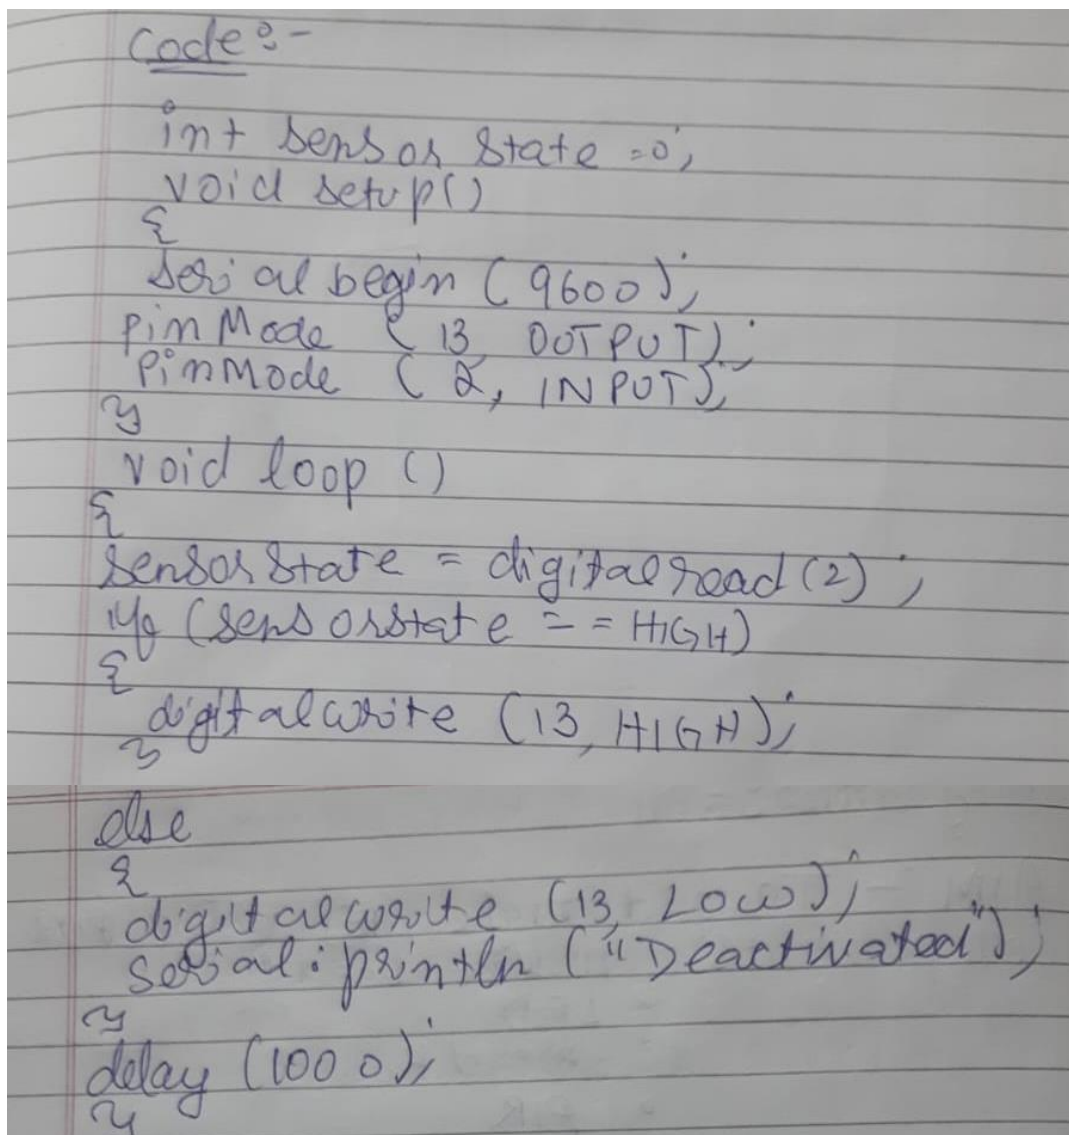 Code :-
int sensor state = 0;
void setup()
{
serial begin (9600);
pinMode (13, OUTPUT);
PinMode (2, INPUT);
}
void loop ()
{
sensorstate = digitalread (2);
if (sensorstate == HIGH)
{
digitalwrite (13, HIGH);
}
else
{
digitalwrite (13, LOW);
serial.println ("Deactivated");
}
delay (1000);
}